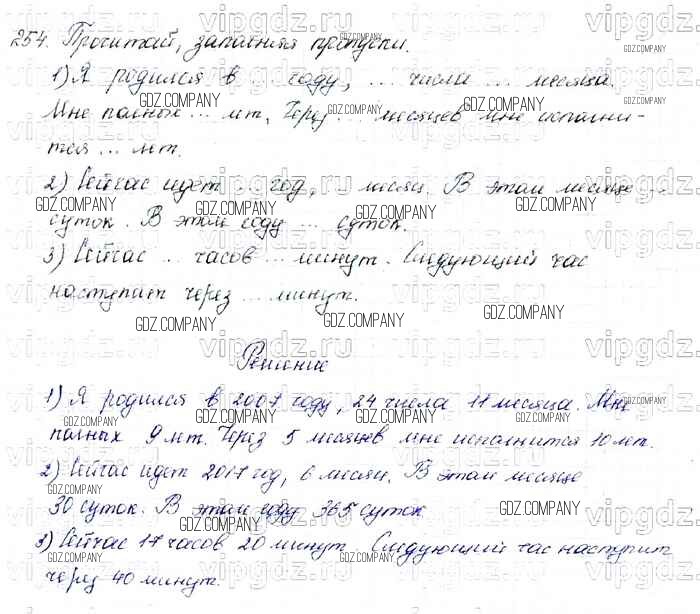 254. Прочитай, заполняя пропуски.
1) Я родился в ... году, ... числа ... месяца.
Мне полных ... лет. Через ... месяцев мне исполни-
тся ... лет.
2) Сейчас идет ... год, ... месяц. В этом месяце ...
суток. В этом году ... суток.
3) Сейчас ... часов ... минут. Следующий час
наступает через ... минут.
Решение
1) Я родился в 2007 году, 24 числа 11 месяца. Мне
полных 9 лет. Через 5 месяцев мне исполнится 10 лет.
2) Сейчас идет 2017 год, 6 месяц. В этом месяце
30 суток. В этом году 365 суток
3) Сейчас 17 часов 20 минут Следующий час наступит
через 40 минут.
vipgdz.ru
GDZ.COMPANY